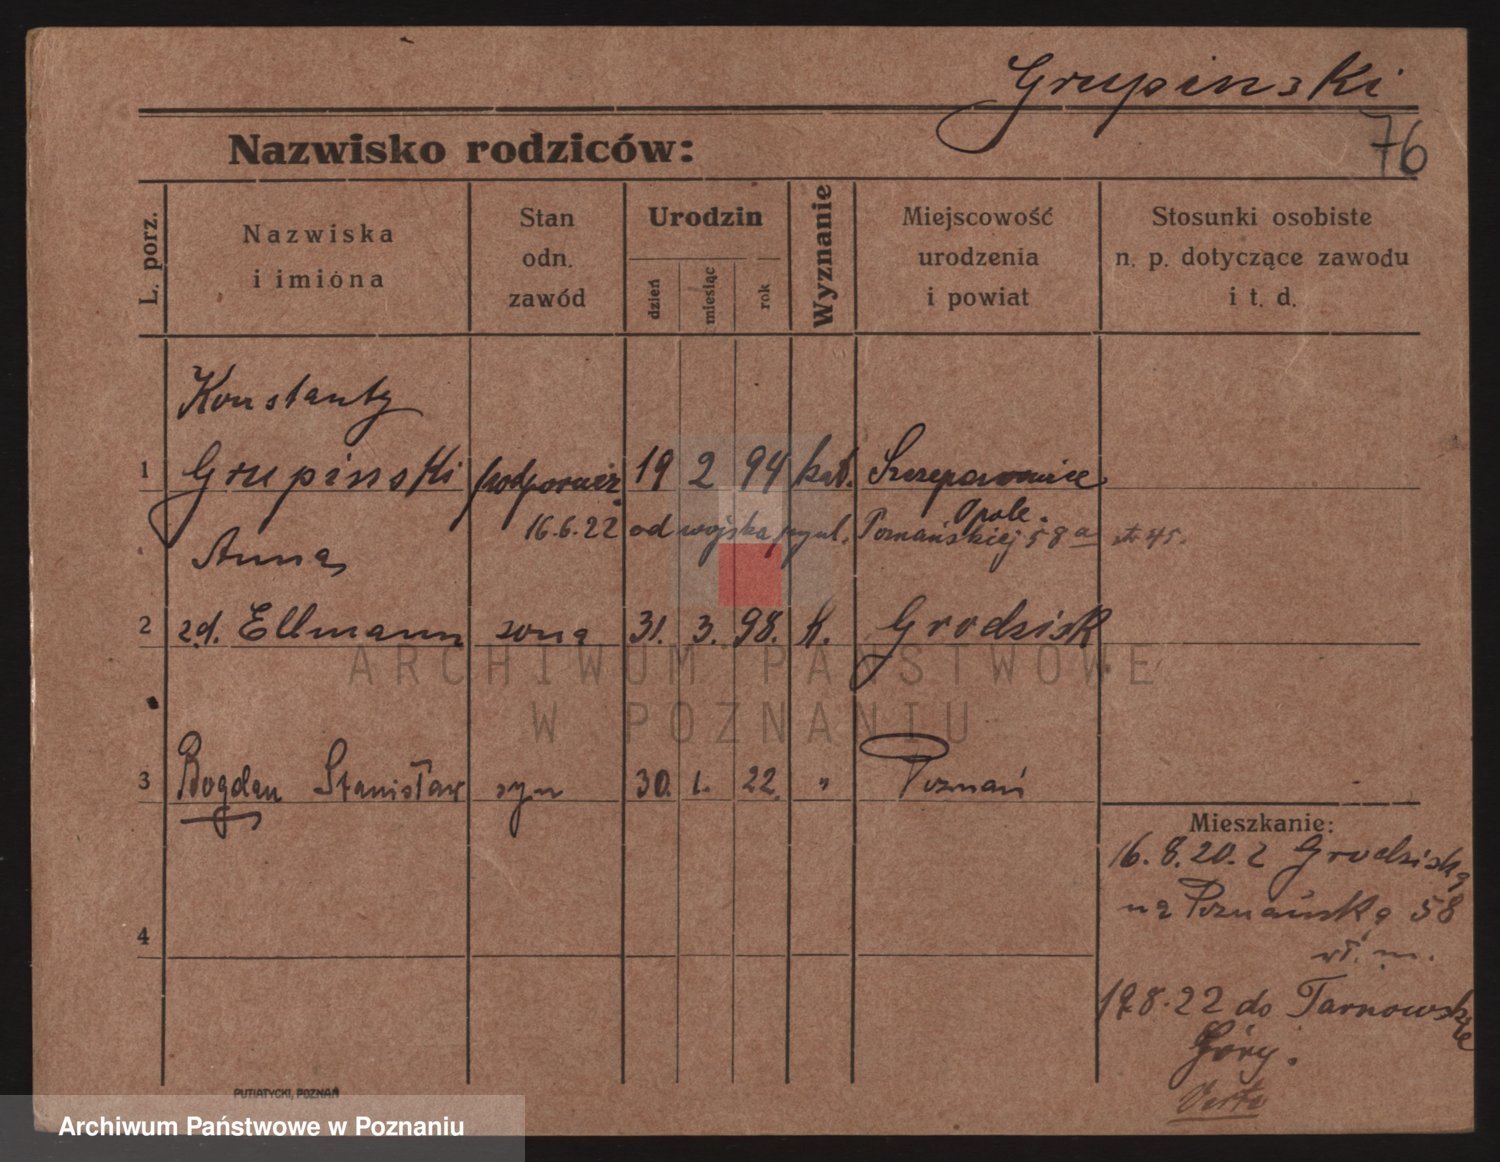 Grupinski
76
Nazwisko rodziców:
L. porz.
Nazwiska
i imióna
Stan
odn.
zawód
Urodzin
dzień
miesiąc
rok
Wyznanie
Miejscowość
urodzenia
i powiat
Stosunki osobiste
n. p. dotyczące zawodu
i t. d.
Konstanty
1 Grupinski podporucz. 19 2 94 kat. Szczepanowice
Opole.
16.6.22 od wojska Poznańskiej 58 a 45.
Anna
2 zd. Ellmann zona 31. 3. 98. k. Grodzisk
ARCHIWUM PAŃSTWOWE
W POZNANIU
3 Bogdan Stanisław syn 30. 1. 22. " Poznań
Mieszkanie:
16.8.20. z Grodziska
na Poznańską 58
wł. m.
4
19.8.22 do Tarnowskie
Góry.
Verte
PUTIATYCKI, POZNAŃ
Archiwum Państwowe w Poznaniu